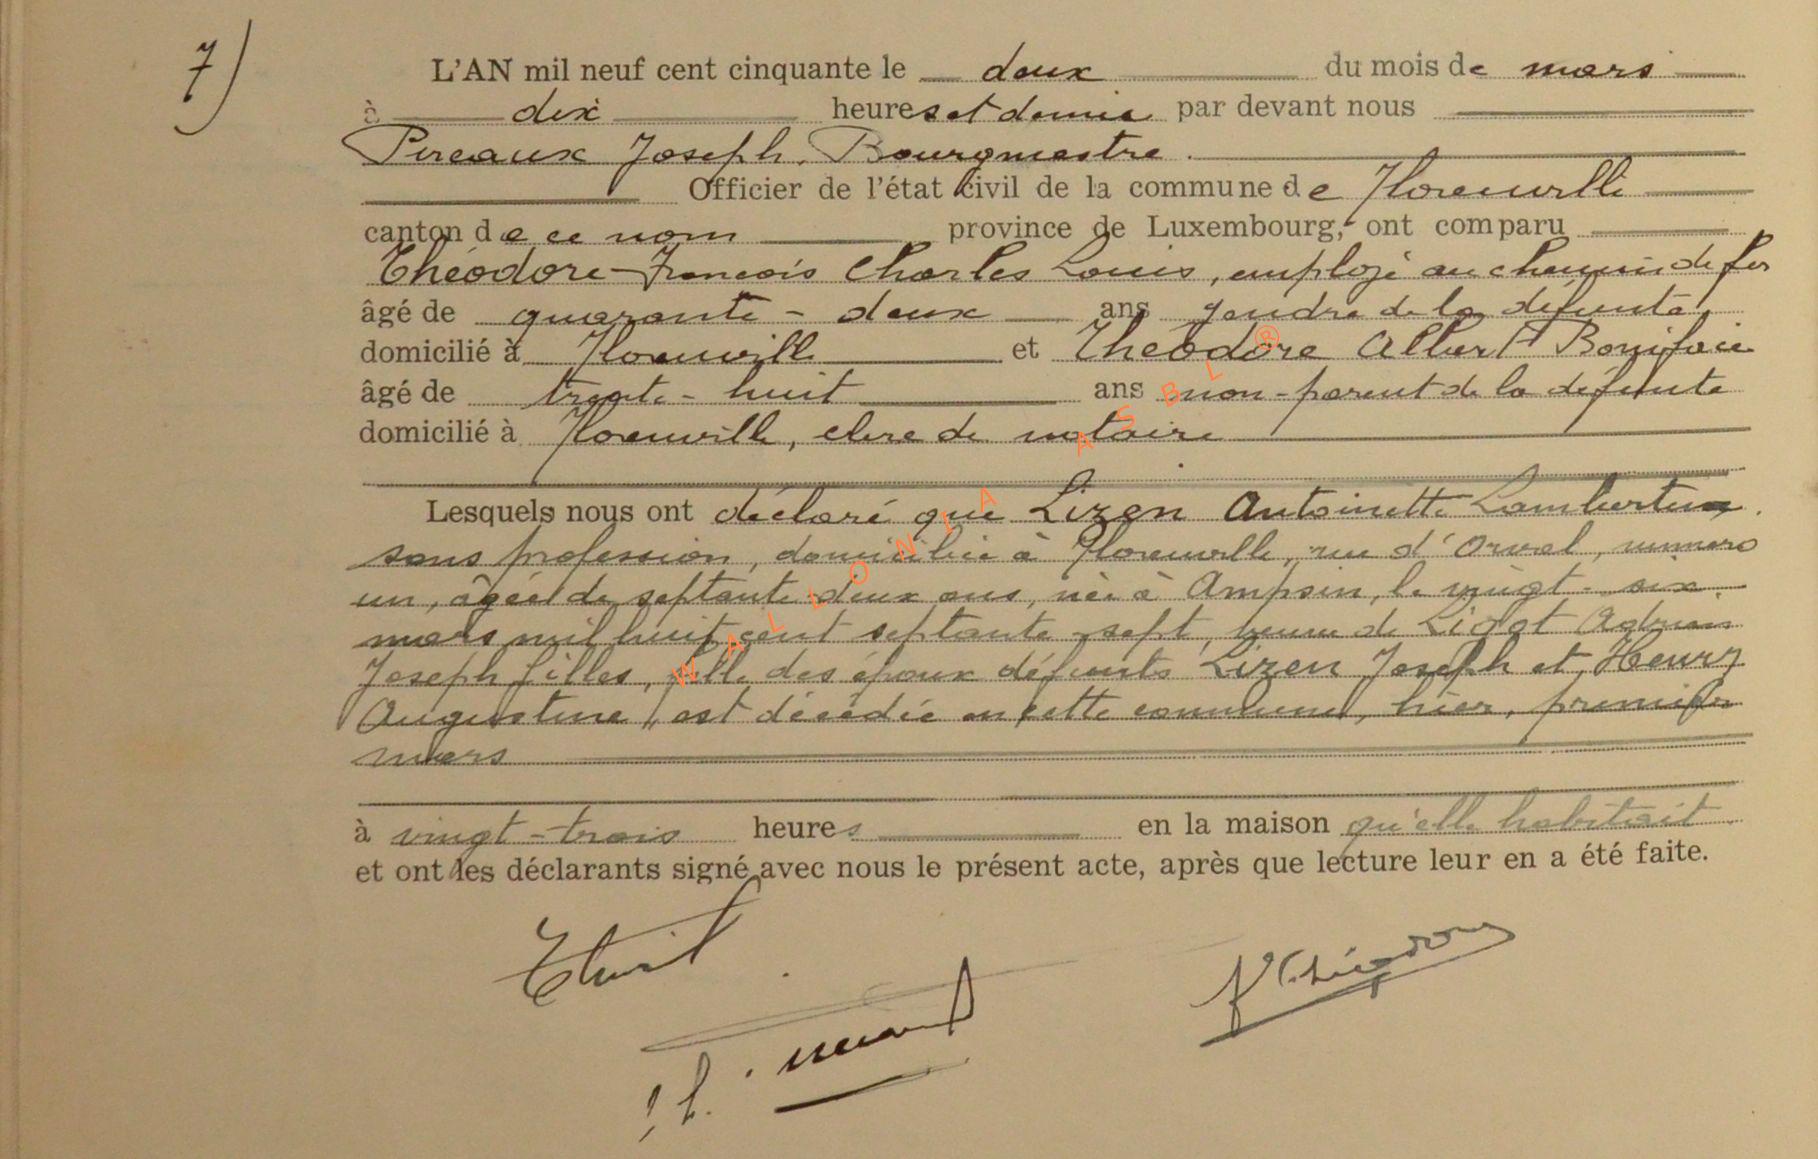 7)
L'AN mil neuf cent cinquante le deux du mois de mars
à dix heures et demie par devant nous
Pireaux Joseph, Bourgmestre.
Officier de l'état civil de la commune de Florenville
canton de ce nom province de Luxembourg, ont comparu
Théodore François Charles Louis, employé au chemin de fer
âgé de quarante-deux ans gendre de la défunte,
domicilié à Florenville et Théodore Albert Boniface
âgé de trente-huit ans non-parent de la défunte
domicilié à Florenville, clerc de notaire
Lesquels nous ont déclaré que Lizen Antoinette Lambertine
sans profession, domiciliée à Florenville, rue d'Orval, numéro
un, âgée de septante-deux ans, née à Ampsin, le vingt-six
mars mil huit cent septante-sept, veuve de Adrien
Joseph Gilles, fille des époux défunts Lizen Joseph et Henry
Augustine, est décédée en cette commune, hier, premier
mars
à vingt-trois heures en la maison qu'elle habitait
et ont les déclarants signé avec nous le présent acte, après que lecture leur en a été faite.
WALLONIA ASBL ®